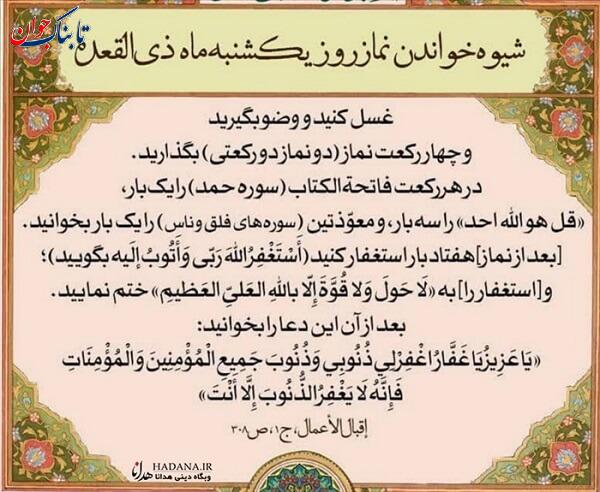 تابناک جوان
شیوه خواندن نماز روز یکشنبه ماه ذی القعده
غسل کنید و وضو بگیرید
و چهار رکعت نماز (دو نماز دو رکعتی) بگذارید.
در هر رکعت فاتحة الکتاب (سوره حمد) را یک بار،
«قل هو الله احد» را سه بار، و معوّذتین (سوره های فلق و ناس) را یک بار بخوانید.
[بعد از نماز] هفتاد بار استغفار کنید (أَسْتَغْفِرُ اللهَ رَبّی وَأَتُوبُ إلَیه بگویید)؛
و [استغفار را] به «لَا حَولَ وَلا قُوَّةَ إِلّا باللهِ العَلیِّ العَظیمِ» ختم نمایید.
بعد از آن این دعا را بخوانید:
«یَا عَزِیزُ یَا غَفَّارُ اغْفِرْ لِي ذُنُوبِي وَذُنُوبَ جَمِیعِ الْمُؤْمِنِینَ وَالْمُؤْمِنَاتِ
فَإِنَّهُ لَا یَغْفِرُ الذُّنُوبَ إِلَّا أَنْتَ»
إقبال الأعمال، ج۱، ص۳۰۸
HADANA.IR
وبگاه دینی هدانا هدانا